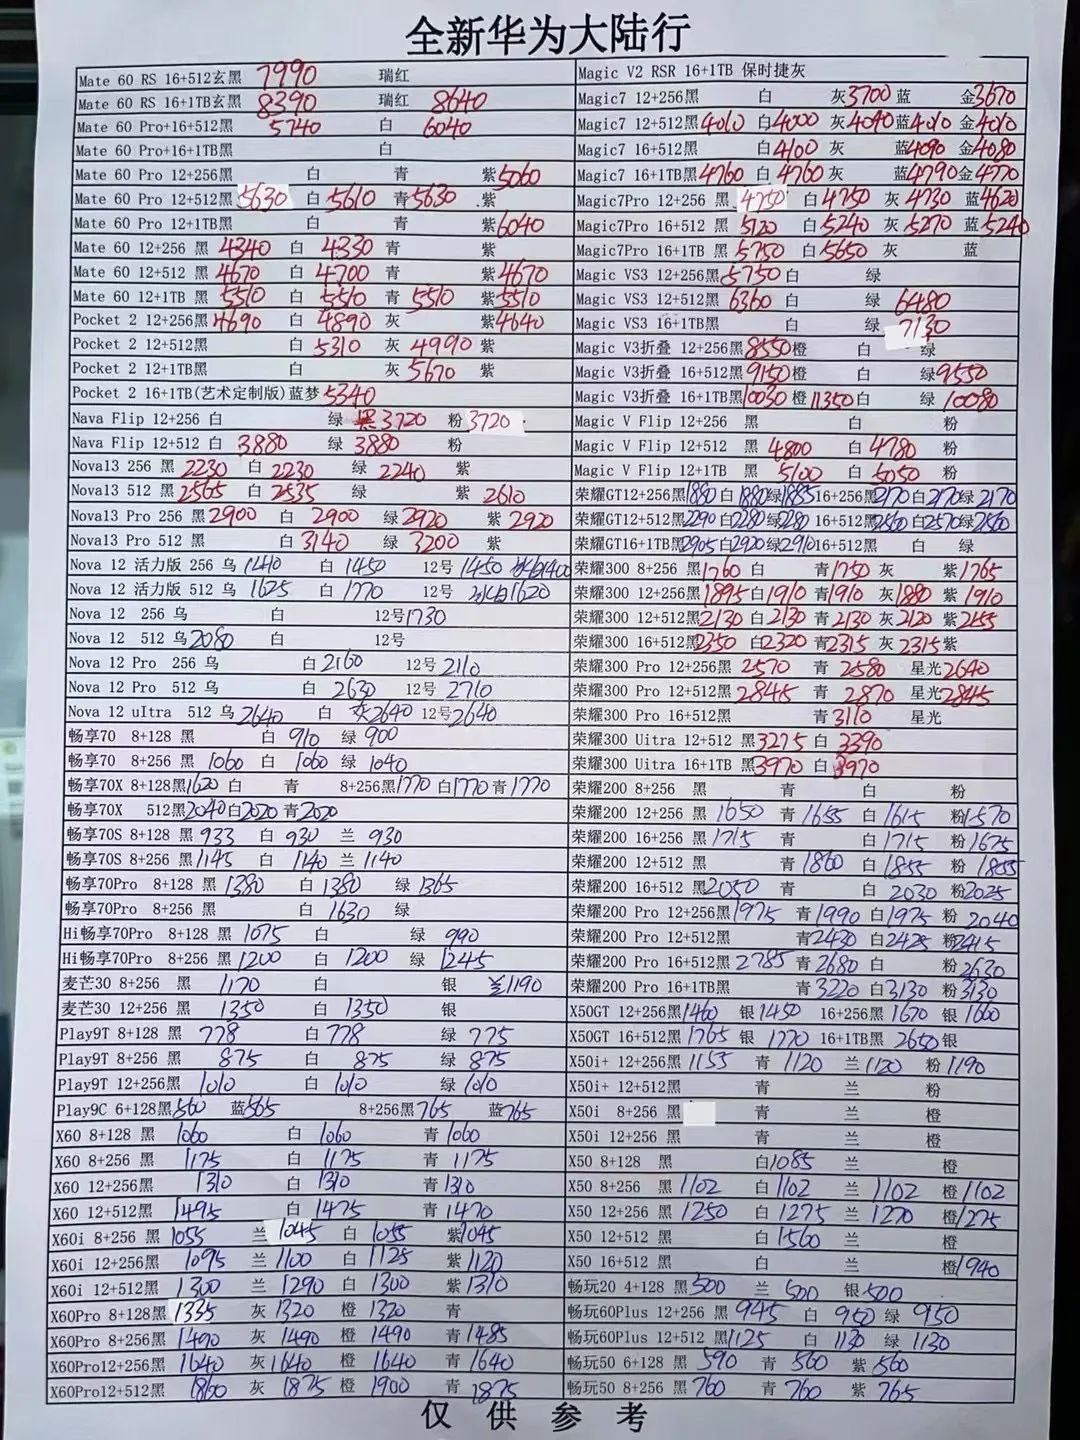 全新华为大陆行
Mate 60 RS 16+512玄黑 7990 瑞红
Mate 60 RS 16+1TB玄黑 8390 瑞红 8640
Mate 60 Pro+16+512黑 5740 白 6040
Mate 60 Pro+16+1TB黑 白
Mate 60 Pro 12+256黑 白 青 紫5060
Mate 60 Pro 12+512黑 5630 白 5610 青5630 紫
Mate 60 Pro 12+1TB黑 白 青 紫6040
Mate 60 12+256 黑 4340 白 4330 青 紫
Mate 60 12+512 黑 4670 白 4700 青 紫4670
Mate 60 12+1TB 黑 5510 白 5510 青 5510 紫5510
Pocket 2 12+256黑4690 白 4890 灰 紫4640
Pocket 2 12+512黑 白 5310 灰 4990 紫
Pocket 2 12+1TB黑 白 灰 5670 紫
Pocket 2 16+1TB(艺术定制版)蓝梦5340
Nava Flip 12+256 白 绿 黑3720 粉 3720
Nava Flip 12+512 白 3880 绿 3880 粉
Nova13 256 黑 2230 白 2230 绿 2240 紫
Nova13 512 黑 2565 白 2535 绿 紫 2610
Nova13 Pro 256 黑2900 白 2900 绿2920 紫 2920
Nova13 Pro 512 黑 白 3140 绿 3200 紫
Nova 12 活力版 256 乌 1440 白 1450 12号 1450 冰白1400
Nova 12 活力版 512 乌 1625 白 1770 12号 冰白1620
Nova 12 256 乌 白 12号1730
Nova 12 512 乌2080 白 12号
Nova 12 Pro 256 乌 白2160 12号 2110
Nova 12 Pro 512 乌 白 2630 12号 2710
Nova 12 uItra 512 乌 2640 白 灰2640 12号2640
畅享70 8+128 黑 白 910 绿 900
畅享70 8+256 黑 1060 白 1060 绿 1040
畅享70X 8+128黑1620 白 青 8+256黑1770 白1770 青 1770
畅享70X 512黑2040白2020 青2020
畅享70S 8+128 黑 933 白 930 兰 930
畅享70S 8+256 黑1145 白 1140 兰 1140
畅享70Pro 8+128 黑 1380 白 1380 绿 1365
畅享70Pro 8+256 黑 白 1630 绿
Hi畅享70Pro 8+128 黑 1075 白 绿 990
Hi畅享70Pro 8+256 黑 1200 白 1200 绿 1245
麦芒30 8+256 黑 1170 白 银 兰1190
麦芒30 12+256 黑 1350 白 1350 银
Play9T 8+128 黑 778 白 778 绿 775
Play9T 8+256 黑 875 白 875 绿 875
Play9T 12+256黑 1010 白 1010 绿 1010
Play9C 6+128黑560 蓝565 8+256黑765 蓝765
X60 8+128 黑 1060 白 1060 青 1060
X60 8+256 黑 1175 白 1175 青 1175
X60 12+256黑 1310 白 1310 青1310
X60 12+512黑 1495 白 1475 青 1470
X60i 8+256 黑 1055 兰 1045 白 1055 紫1045
X60i 12+256黑 1095 兰 1100 白 1125 紫1120
X60i 12+512黑 1300 兰 1290 白 1300 紫1310
X60Pro 8+128黑 1335 灰 1320 橙 1320 青
X60Pro 8+256黑 1490 灰 1490 橙 1490 青1485
X60Pro12+256黑 1640 灰1640 橙 1640 青1640
X60Pro12+512黑 1860 灰 1875 橙 1900 青 1875
Magic V2 RSR 16+1TB 保时捷灰
Magic7 12+256黑 白 灰3700 蓝 金3670
Magic7 12+512黑4010 白4000 灰4040蓝4010 金4010
Magic7 16+512黑 白4100 灰 蓝4090 金4080
Magic7 16+1TB黑4760 白 4760 灰 蓝4790金4770
Magic7Pro 12+256 黑 4750 白4750 灰 4730 蓝4620
Magic7Pro 16+512 黑 5120 白5240 灰 5270 蓝5240
Magic7Pro 16+1TB 黑 5750 白5650 灰 蓝
Magic VS3 12+256黑5750 白 绿
Magic VS3 12+512黑 6360 白 绿 6480
Magic VS3 16+1TB黑 白 绿 7130
Magic V3折叠 12+256黑8550橙 白 绿
Magic V3折叠 16+512黑9150橙 白 绿9550
Magic V3折叠 16+1TB黑10030 橙 11350白 绿 10080
Magic V Flip 12+256 黑 白 粉
Magic V Flip 12+512 黑 4800 白 4780 粉
Magic V Flip 12+1TB 黑 5100 白 5050 粉
荣耀GT12+256黑1880 白1880绿1885 16+256黑2170 白2170绿 2170
荣耀GT12+512黑2290 白2280绿2280 16+512黑2560 白2570绿2560
荣耀GT16+1TB黑2905白2920绿2910 16+512黑 白 绿
荣耀300 8+256 黑1760 白 青1750 灰 紫1765
荣耀300 12+256黑1895白1910 青1910 灰1880 紫1910
荣耀300 12+512黑2130 白 2130 青 2130 灰 2120 紫2155
荣耀300 16+512黑2350 白2320 青2315 灰 2315紫
荣耀300 Pro 12+256黑 2570 青 2580 星光2640
荣耀300 Pro 12+512黑2845 青 2870 星光2845
荣耀300 Pro 16+512黑 青3110 星光
荣耀300 Uitra 12+512 黑3275 白 3390
荣耀300 Uitra 16+1TB 黑3970 白 3970
荣耀200 8+256 黑 青 白 粉
荣耀200 12+256 黑 1650 青1655 白1615 粉1570
荣耀200 16+256 黑 1715 青 白1715 粉1675
荣耀200 12+512 黑 青1860 白1855 粉 1855
荣耀200 16+512 黑2050 青 白 2030 粉2025
荣耀200 Pro 12+256黑1975 青1990 白1975 粉 2040
荣耀200 Pro 12+512黑 青2430 白2425 粉2415
荣耀200 Pro 16+512黑 2785 青2680 白 粉2630
荣耀200 Pro 16+1TB黑 青3220 白3130 粉3130
X50GT 12+256黑1460 银1450 16+256黑 1670 银 1660
X50GT 16+512黑1765 银 1770 16+1TB黑 2650银
X50i+ 12+256黑1155 青 1120 兰1120 粉1190
X50i+ 12+512黑 青 兰 粉
X50i 8+256 黑 青 兰 橙
X50i 12+256 黑 青 兰 橙
X50 8+128 黑 白1085 兰 橙
X50 8+256 黑1102 白1102 兰 1102 橙1102
X50 12+256 黑1250 白 1275 兰 1270 橙1275
X50 12+512 黑 白1560 兰 橙
X50 16+512 黑 白 兰 橙1940
畅玩20 4+128 黑500 兰 500 银500
畅玩60Plus 12+256 黑 945 白 950 绿 950
畅玩60Plus 12+512 黑1125 白 1130 绿 1130
畅玩50 6+128 黑 590 青 560 紫560
畅玩50 8+256 黑 760 青 760 紫 765
仅 供 参 考